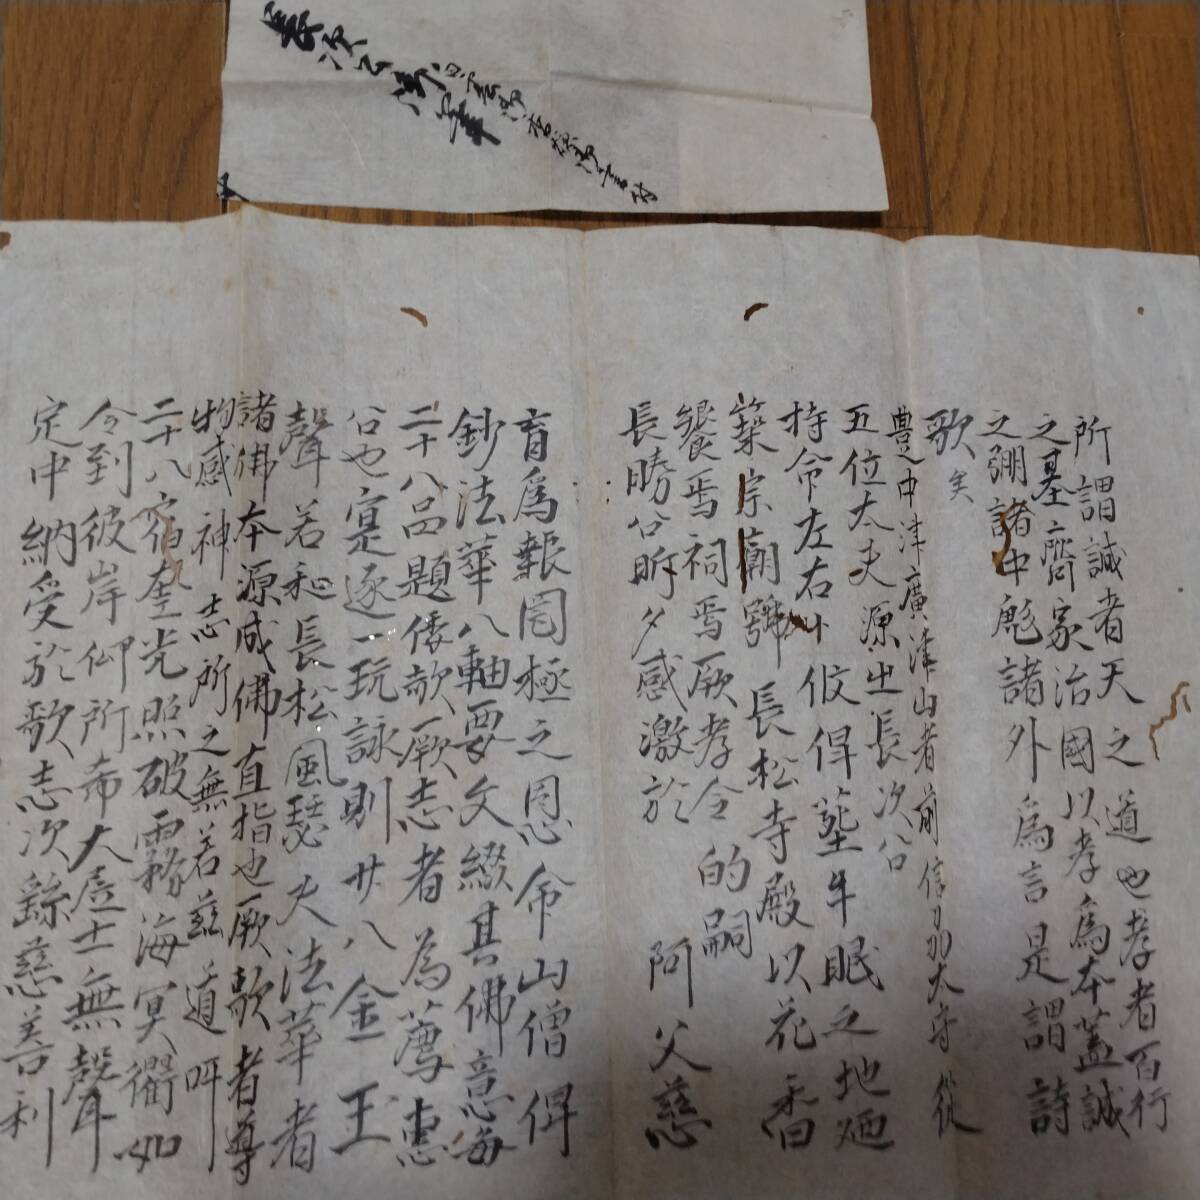 長次公御筆
所謂誠者天之道也孝者百行
之基齊家治國以孝為本蓋誠
之弸諸中彪諸外為言是謂詩
歌矣
豊之中津廣津山者前信刕太守従
五位大夫源出長次公
持命左右卜佼得塟牛眠之地廼
築宗廟號長松寺殿以花香
餽焉祠焉厥孝令的嗣
長勝公昕夕感激於阿父慈
育為報罔極之恩命山僧倳
鈔法華八軸要文綴其佛意毎
二十八品題倭歌厥志者為薦惠
公也寔逐一玩詠則廿八金玉
聲若和長松風瑟夫法華者
諸佛本源成佛直指也厥歌者尊
物感神志所之無若茲道吁
二十八宿奎光照破霧海冥衢如
令到彼岸仰所希大虛士無聲
定中納受於歌志次繇慈善利